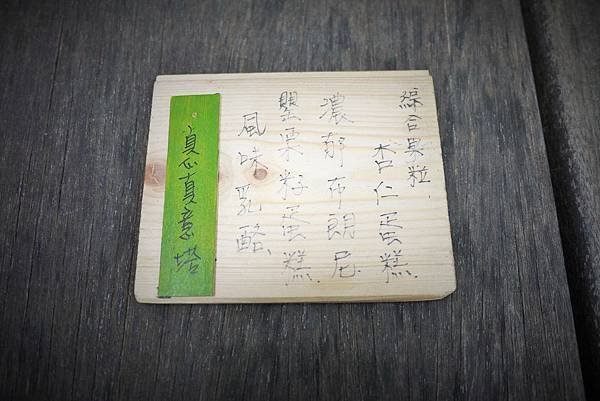 綜合果粒
杏仁蛋糕
濃郁布朗尼
罌栗籽蛋糕
風味乳酪
真心真意塔